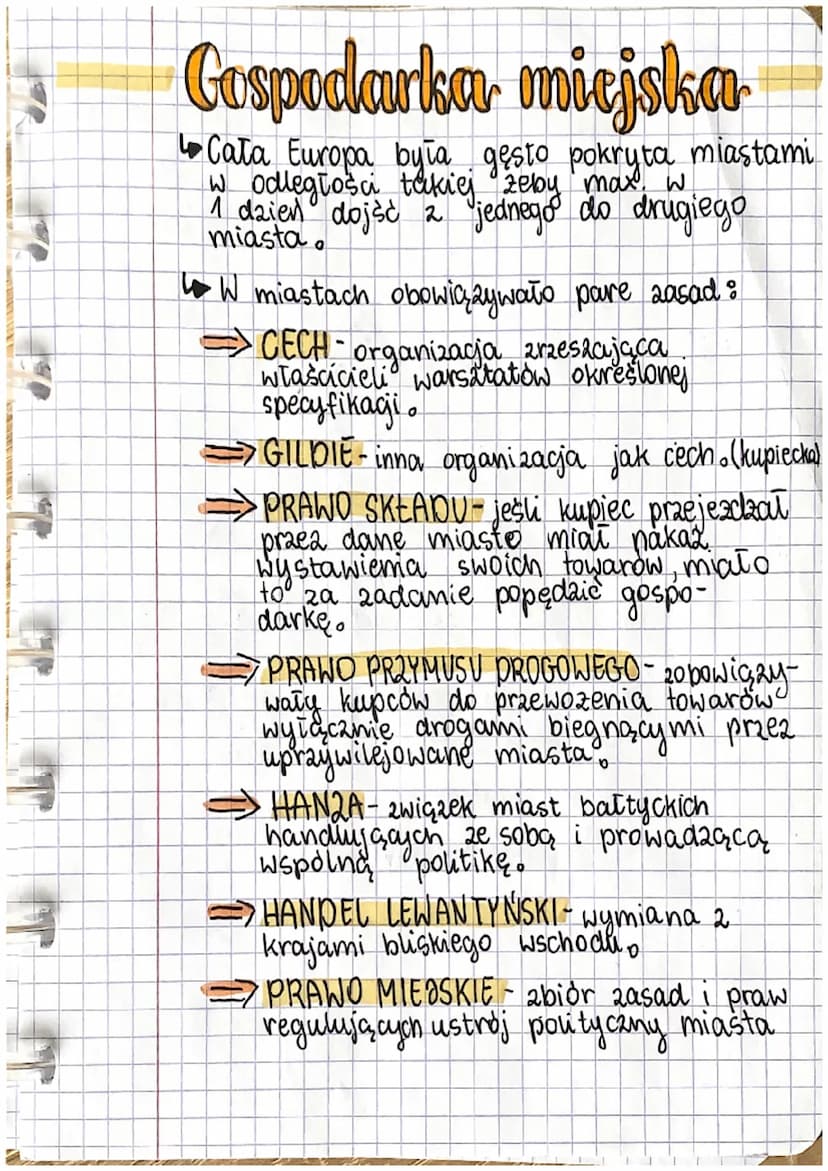 Gospodarka miejska
↳ Cała Europa była gęsto pokryta miastami
w odległości takiej żeby max. w
1 dzień dojść z jednego do drugiego
miasta.
↳ W miastach obowiązywało pare zasad:
⇒ CECH - organizacja zrzeszająca
właścicieli warsztatów określonej
specyfikacji.
⇒ GILDIE - inna organizacja jak cech. (kupiecka)
⇒ PRAWO SKŁADU - jeśli kupiec przejezdzał
przez dane miasto miał nakaz
wystawienia swoich towarów, miało
to za zadanie popędzić gospo-
darkę.
⇒ PRAWO PRZYMUSU DROGOWEGO - zobowiązy-
wały kupców do przewożenia towarów
wyłącznie drogami biegnącymi przez
uprzywilejowane miasta.
⇒ HANZA - związek miast bałtyckich
handlujących ze sobą i prowadzącą
wspólną politikę.
⇒ HANDEL LEWANTYŃSKI - wymiana z
krajami bliskiego wschodu.
⇒ PRAWO MIEJSKIE - zbiór zasad i praw
regulujących ustrój polityczny miasta